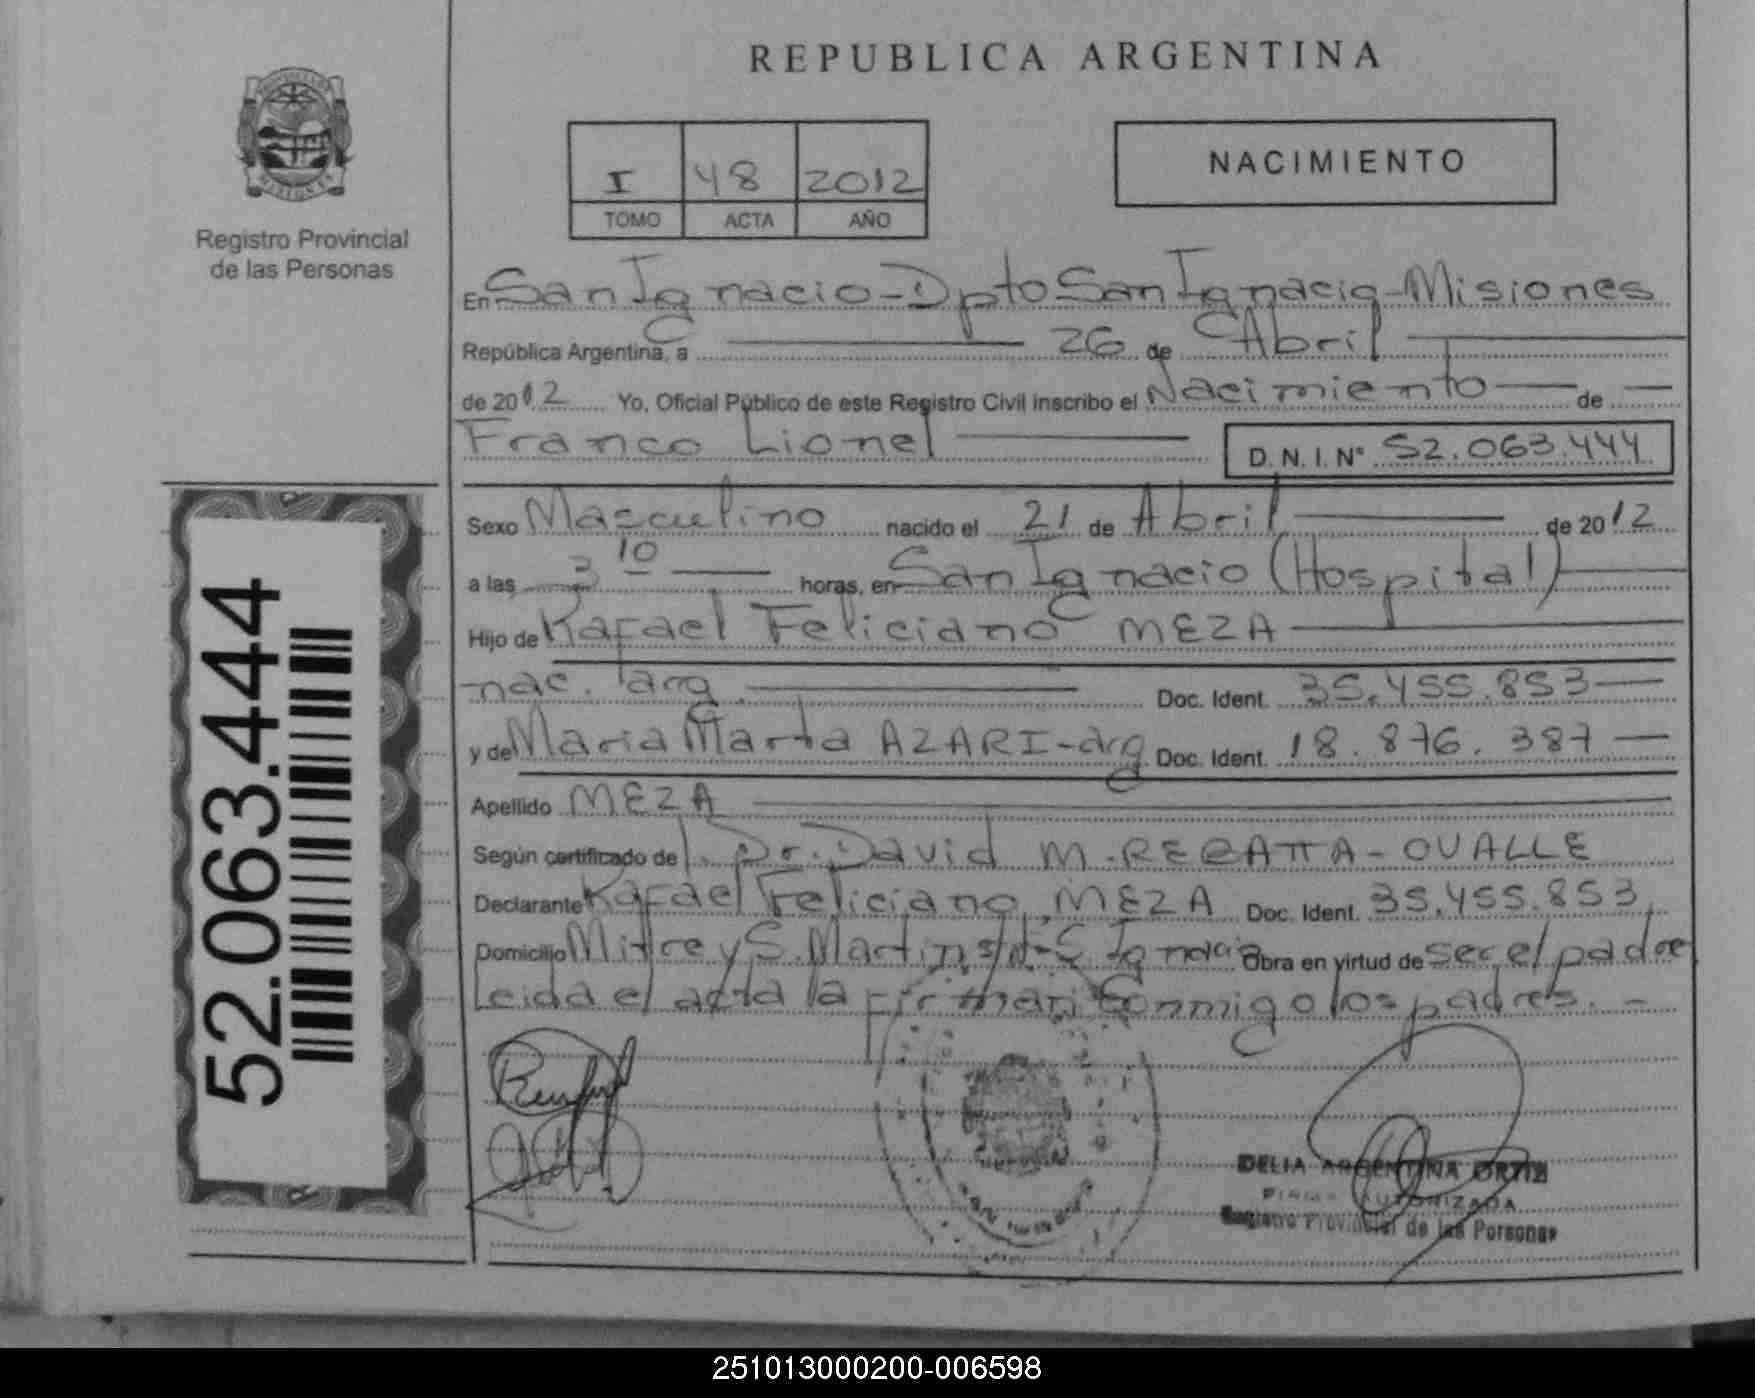 REPUBLICA ARGENTINA
Registro Provincial
de las Personas
I 48 2012
TOMO ACTA AÑO
NACIMIENTO
En San Ignacio - Dpto San Ignacio - Misiones
República Argentina, a 26 de Abril
de 2012 Yo, Oficial Público de este Registro Civil inscribo el Nacimiento de
Franco Lionel D. N. I. N° 52.063.444
Sexo Masculino nacido el 21 de Abril de 2012
a las 3 10 horas, en San Ignacio (Hospital)
Hijo de Rafael Feliciano MEZA
nac. arg. Doc. Ident. 35.455.853
y de Maria Marta AZARI - arg Doc. Ident. 18.876.387
Apellido MEZA
Según certificado de Dr. David M. REGATTA - OVALLE
Declarante Rafael Feliciano MEZA Doc. Ident. 35.455.853
Domicilio Mitre y S. Martin s/n - S. Ignacio Obra en virtud de ser el padre
Leida el acta la firman conmigo los padres. -
52.063.444
DELIA ARGENTINA ORTIZ
FIRMA AUTORIZADA
Registro Provincial de las Personas
251013000200-006598